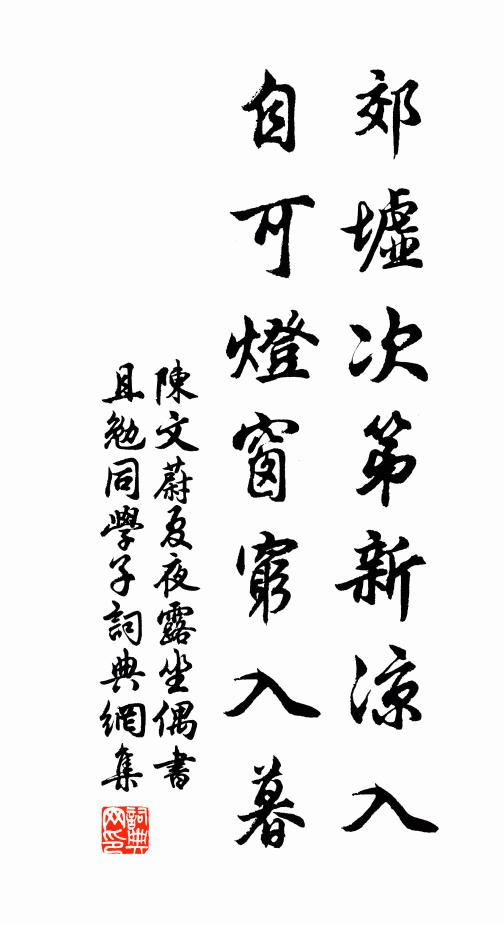 郊墟次第新涼入
自可燈窗窮入暮
陳文蔚夏夜露坐偶書
且勉同學子詞典網集
詞典
网印